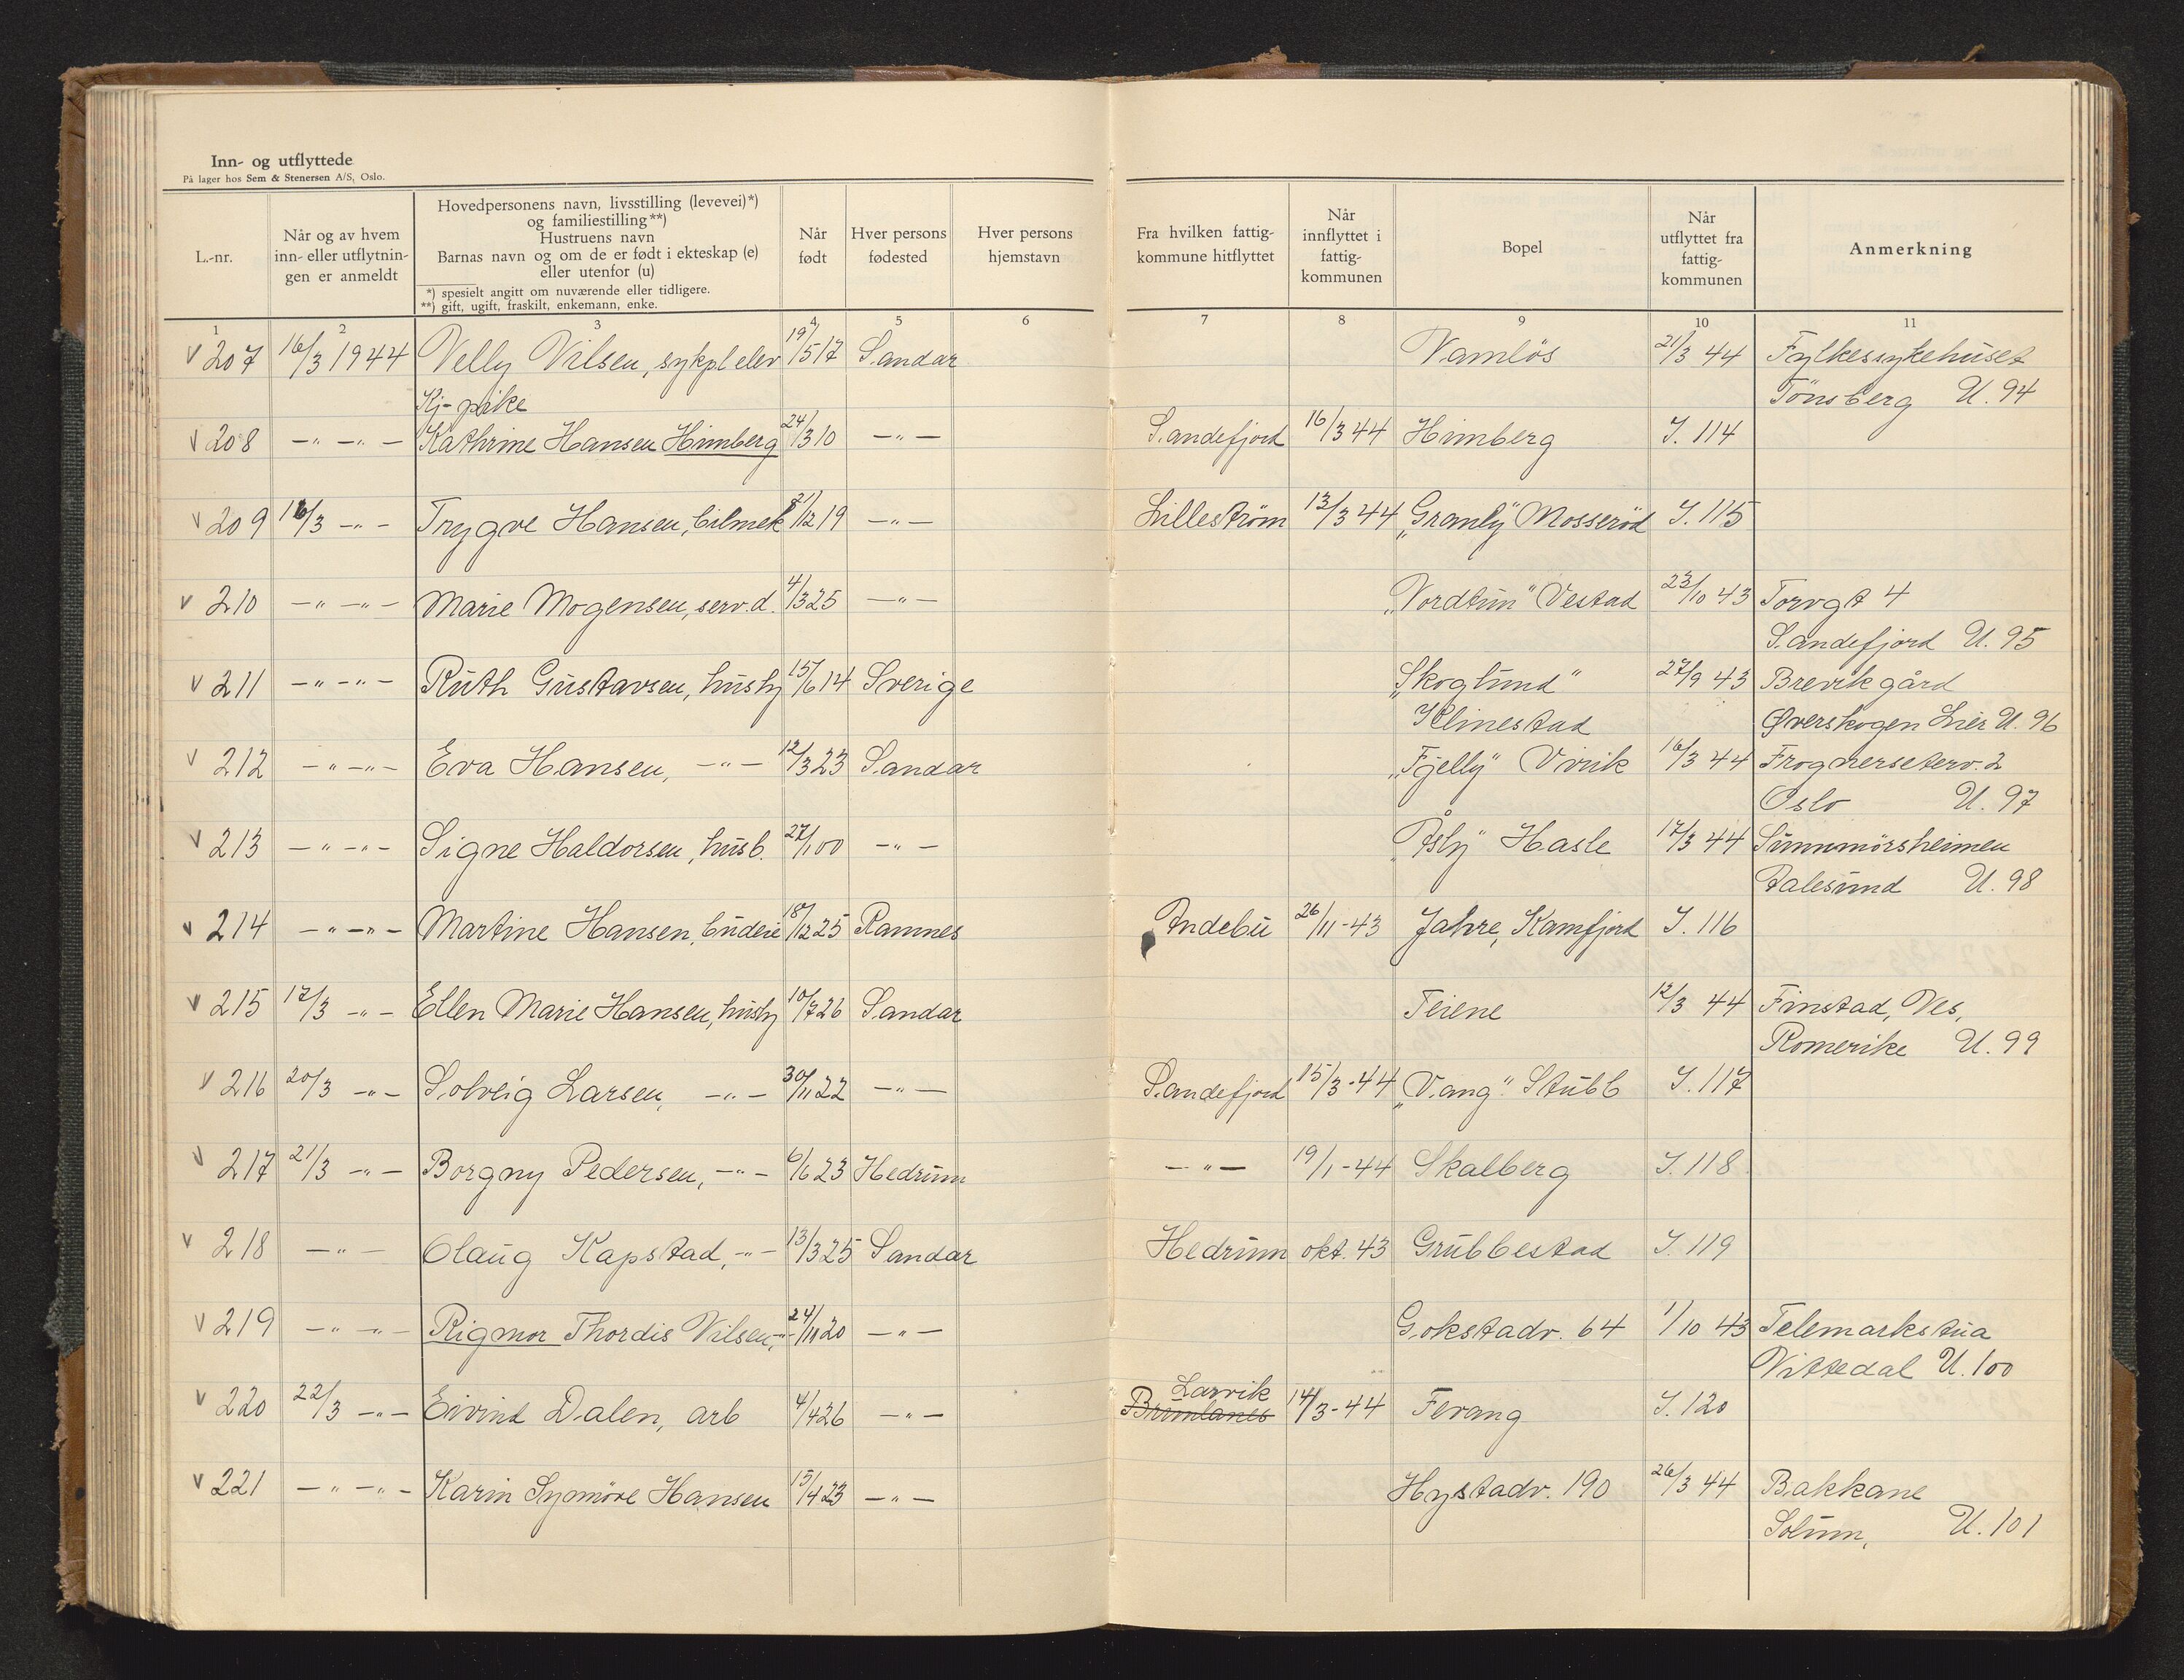 Inn- og utflyttede
På lager hos Sem & Stenersen A/S, Oslo.
L.-nr.
Når og av hvem
inn- eller utflytnin-
gen er anmeldt
Hovedpersonens navn, livsstilling (levevei)*)
og familiestilling**)
Hustruens navn
Barnas navn og om de er født i ekteskap (e)
eller utenfor (u)
*) spesielt angitt om nuværende eller tidligere.
**) gift, ugift, fraskilt, enkemann, enke.
Når
født
Hver persons
fødested
Hver persons
hjemstavn
Fra hvilken fattig-
kommune hitflyttet
Når
innflyttet i
fattig-
kommunen
Bopel
Når
utflyttet fra
fattig-
kommunen
Anmerkning
1 2 3 4 5 6 7 8 9 10 11
v 207 16/3 1944 Nelly Nilsen, sykpl elev 19/5 17 Sandar Namløs 21/3 44 Fylkessykehuset
Kj-pike Tønsberg U. 94
v 208 -"- -"- Kathrine Hansen Himberg 24/3 10 -"- Sandefjord 16/3 44 Himberg I. 114
v 209 16/3 -"- Trygve Hansen, bilmek 21/12 19 -"- Lillestrøm 13/3 44 „Granly" Mosserød I. 115
v 210 -"- -"- Marie Mogensen, serv.d. 4/3 25 -"- „Nordtun" Vestad 23/10 43 Torvgt 4
Sandefjord U. 95
v 211 -"- -"- Ruth Gustavsen, hushj 15/6 14 Sverige „Skoglund" 27/9 43 Brevik gård
Klinestad Øverskogen Lier U. 96
v 212 -"- -"- Eva Hansen, -"- 12/3 23 Sandar „Fjelly" Virik 16/3 44 Frognerseterv. 2
Oslo U. 97
v 213 -"- -"- Signe Haldorsen, husb. 27/1 00 -"- „Åsly" Hasle 17/3 44 Sunnmørsheimen
Aalesund U. 98
v 214 -"- -"- Martine Hansen, budeie 18/12 25 Ramnes Andebu 26/11-43 Jahre, Kamfjord I. 116
v 215 17/3 -"- Ellen Marie Hansen, hushj 10/7 26 Sandar Teiene 12/3 44 Finstad, Nes,
Romerike U. 99
v 216 20/3 -"- Solveig Larsen, -"- 30/11 22 -"- Sandefjord 15/3-44 „Vang" Stubb I. 117
v 217 21/3 -"- Borgny Pedersen, -"- 6/6 23 Hedrum -"- 19/1-44 Skalberg I. 118
v 218 -"- Olaug Kapstad, -"- 13/3 25 Sandar Hedrum okt. 43 Grubbestad I. 119
v 219 -"- -"- Rigmor Thordis Nilsen, -"- 24/11 20 -"- Gokstadv. 64 1/10 43 Telemarkstua
Nittedal U. 100
Larvik
v 220 22/3 -"- Eivind Dalen, arb 4/4 26 -"- Brunlanes 14/3-44 Ferang I. 120
v 221 -"- -"- Karin Synnøve Hansen 15/4 23 -"- Hystadv. 190 26/3 44 Bakkane
Solum, U. 101